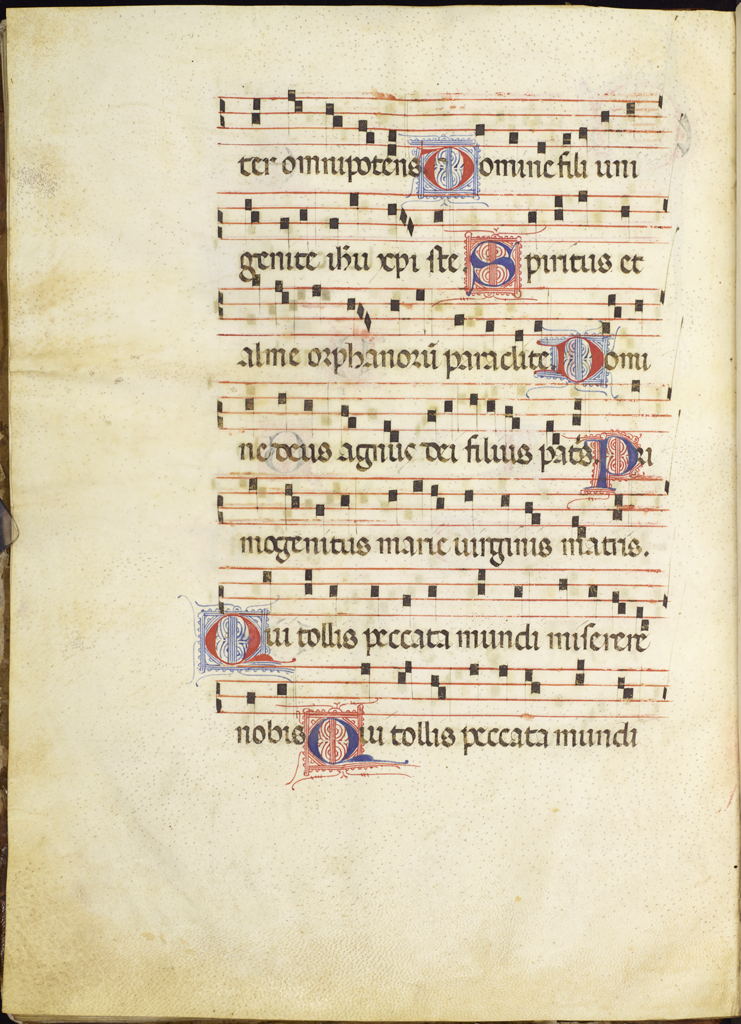 ter omnipotens Domine fili uni
genite ihu xpi ste Spiritus et
alme orphanorū paraclite Domi
ne deus agnus dei filius pat̄s Pri
mogenitus marie uirginis matris.
Qui tollis peccata mundi miserere
nobis Qui tollis peccata mundi